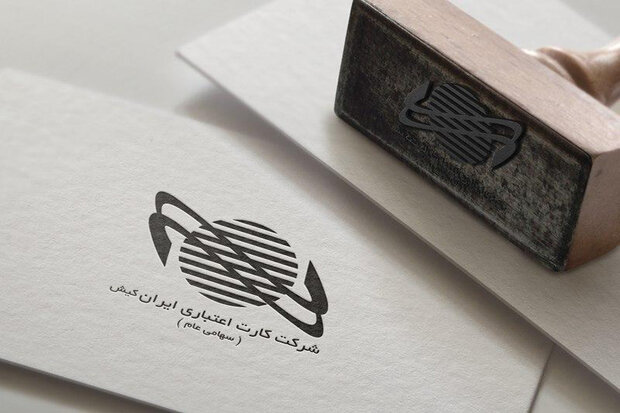 شرکت کارت اعتباری ایران کیش
( سهامی عام )